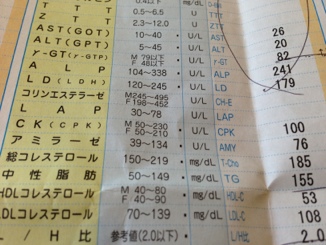 0.4以下 mg/dL
T T T 0.5～6.5 U TTT
Z T T 2.3～12.0 U ZTT
AST(GOT) 10～40 U/L AST 26
ALT(GPT) 5～45 U/L ALT 20
γ-GT(γ-GTP) M 79以下 F 48以下 U/L γ-GT 82
A L P 104～338 U/L ALP 241
LD(LDH) 120～245 U/L LD 179
コリンエステラーゼ M 245～495 F 198～452 U/L CH-E
L A P 30～78 U/L LAP
CK(CPK) M 50～230 F 50～210 U/L CPK 100
アミラーゼ 39～134 U/L AMY 76
総コレステロール 150～219 mg/dL T-Cho 185
中性脂肪 50～149 mg/dL TG 155
HDLコレステロール M 40～80 F 40～90 mg/dL HDL-C 53
LDLコレステロール 70～139 mg/dL LDL-C 108
L／H比 参考値(2.0以下) L/H比 2.0